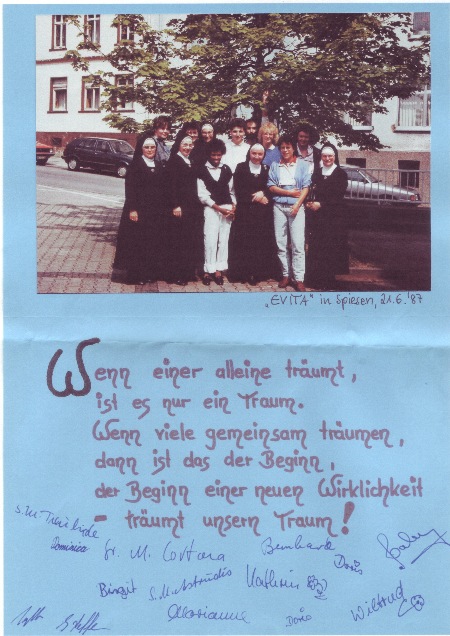 „EVITA" in Spiesen, 21.6.'87
Wenn einer alleine träumt,
ist es nur ein Traum.
Wenn viele gemeinsam träumen,
dann ist das der Beginn,
der Beginn einer neuen Wirklichkeit
- träumt unsern Traum!
Dominica
Sr. M.
Bernharde
Doris
Gaby
Birgit
Kathrin
Marianne
Doris
Wiltrud